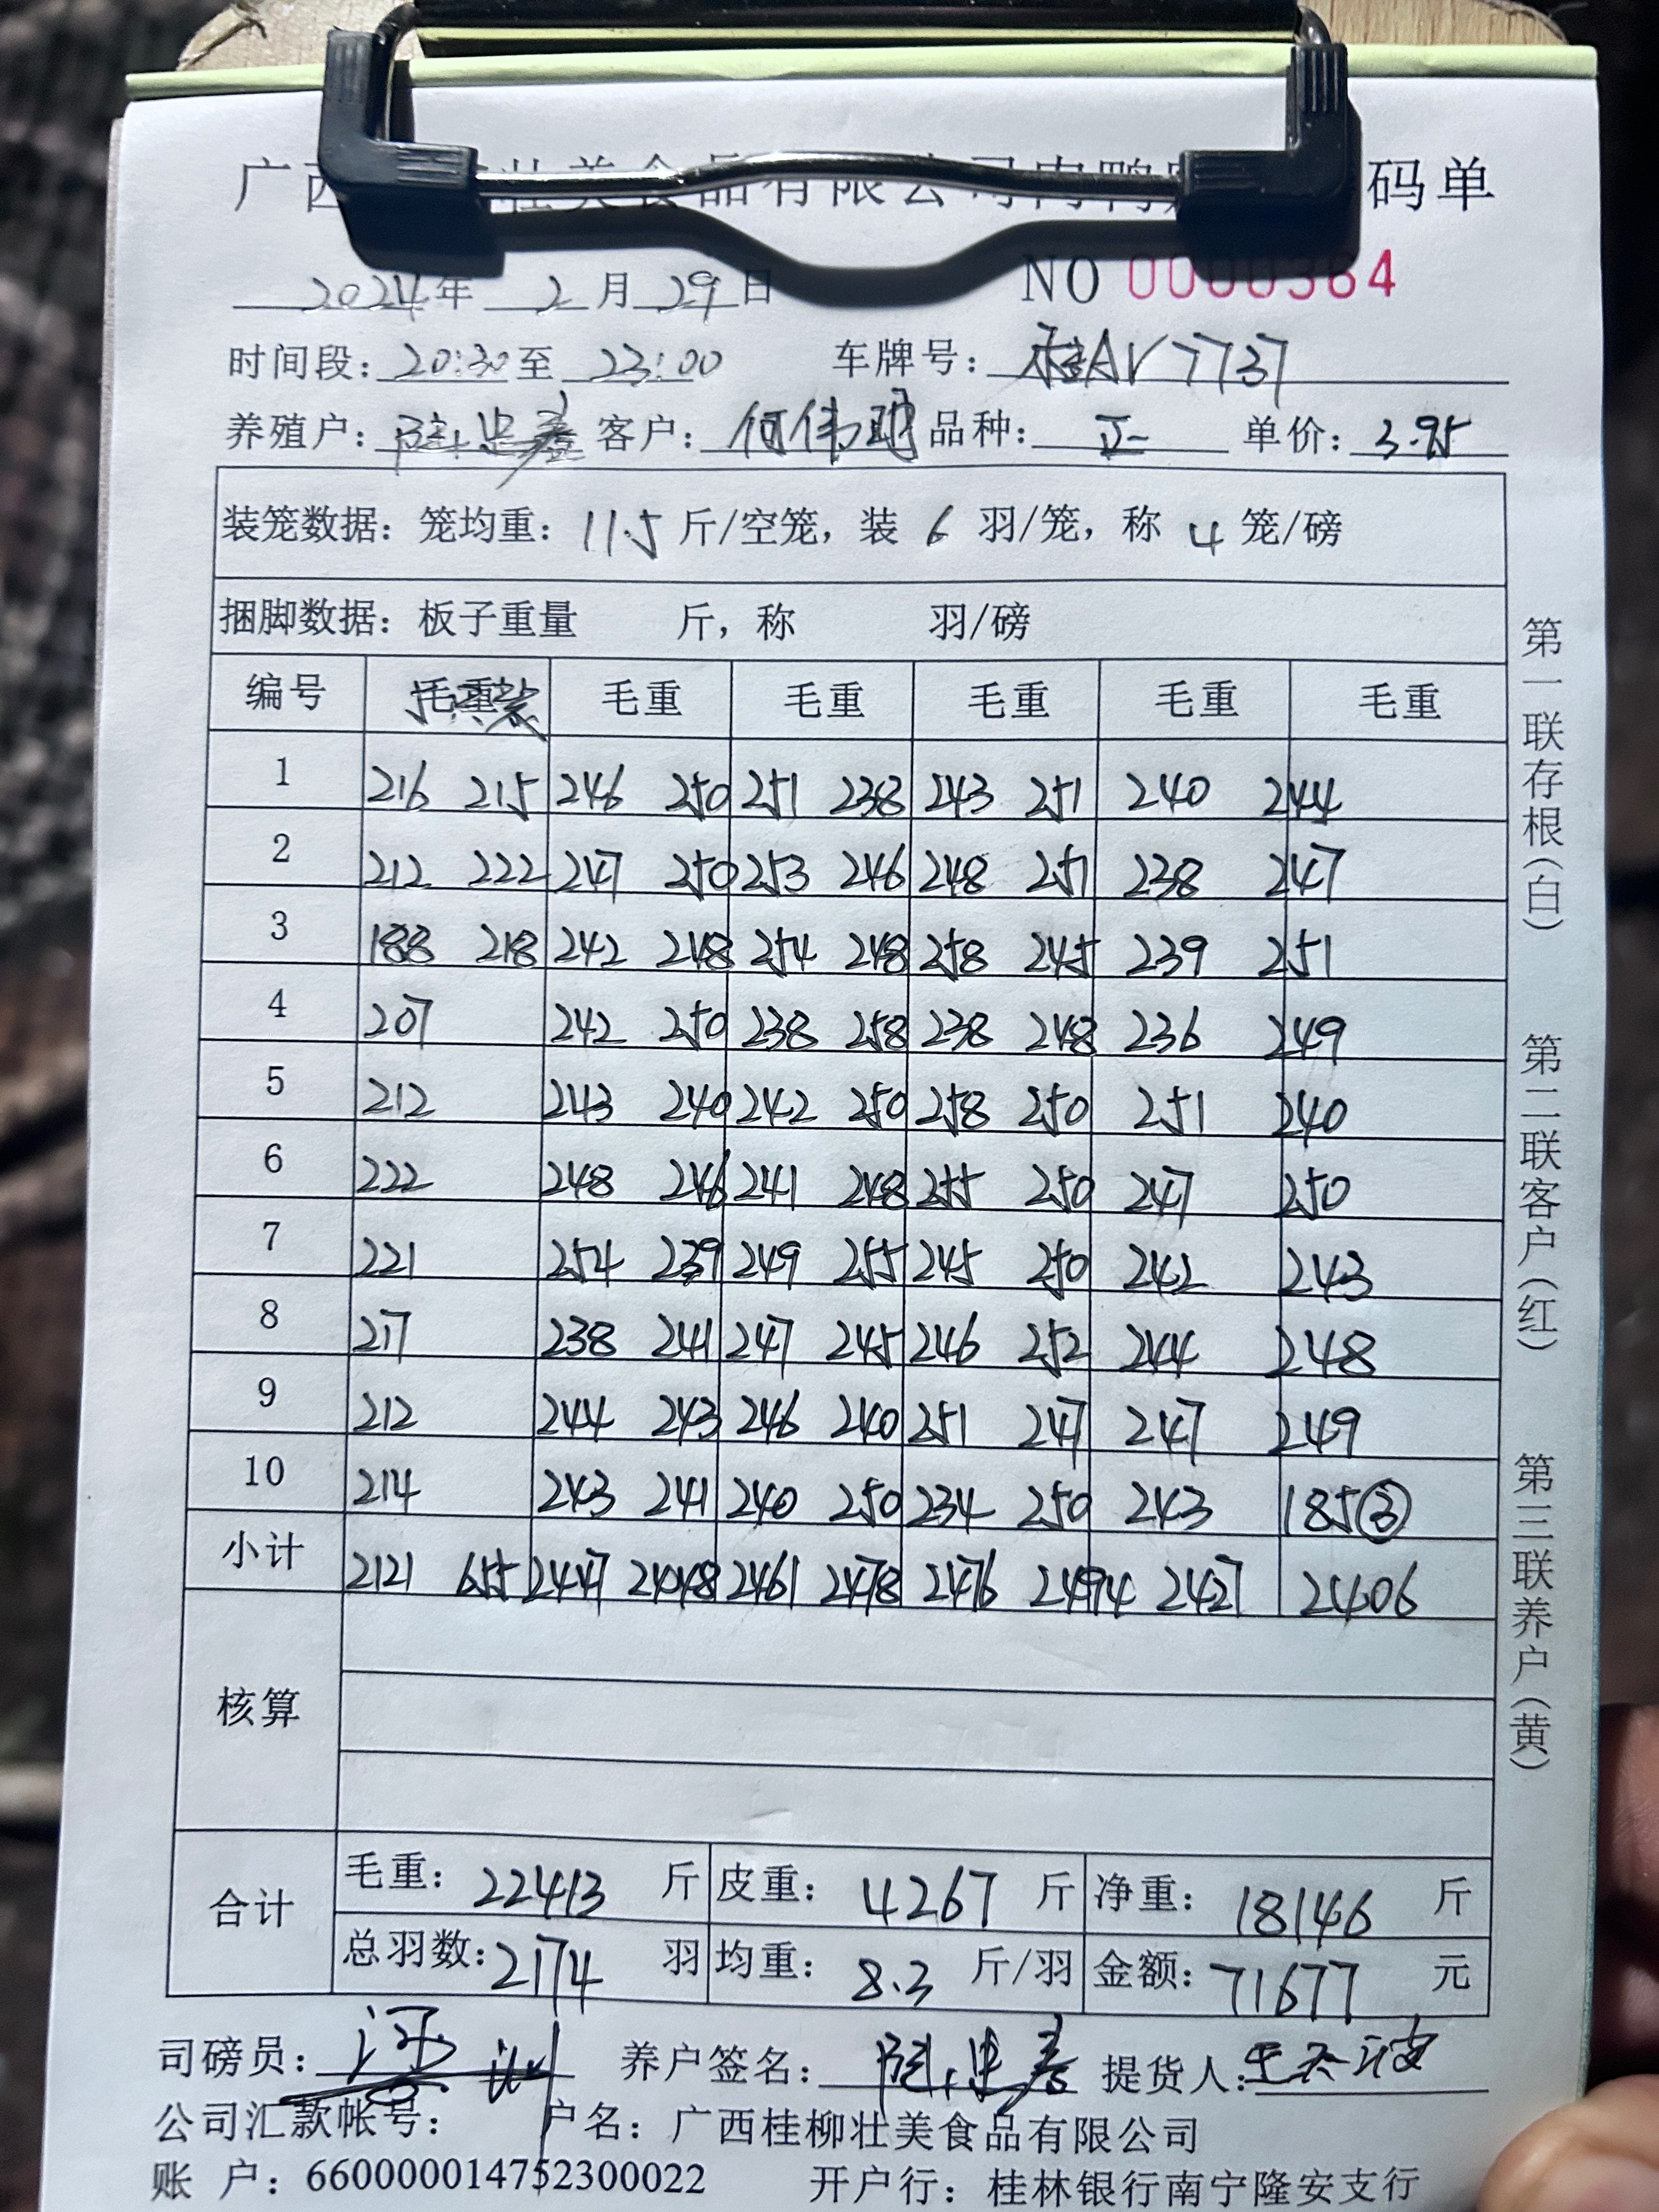 广西 壮美食品有限公司肉鸭 码单
2024年 2月29日 NO 0000364
时间段：20:30至 23:00 车牌号：桂AV7737
养殖户：陆忠春 客户：何伟 品种：正 单价：3.95
装笼数据：笼均重：11.5斤/空笼，装 6 羽/笼，称 4 笼/磅
捆脚数据：板子重量 斤，称 羽/磅
编号 毛重 毛重 毛重 毛重 毛重 毛重
1 216 215 246 250 251 238 243 251 240 244
2 212 222 247 250 253 246 248 251 238 247
3 188 218 242 248 254 248 258 245 239 251
4 207 242 250 238 258 238 248 236 249
5 212 243 240 242 250 258 250 251 240
6 222 248 246 241 248 255 250 247 250
7 221 254 239 249 255 245 250 242 243
8 217 238 241 247 245 246 252 244 248
9 212 244 243 246 240 251 247 247 249
10 214 243 241 240 250 234 250 243 185③
小计 2121 655 2447 2448 2461 2478 2476 2494 2427 2406
核算
合计 毛重：22413 斤 皮重：4267 斤 净重：18146 斤
总羽数：2174 羽 均重：8.3 斤/羽 金额：71677 元
司磅员： 养户签名：陆忠春 提货人：
公司汇款帐号： 户名：广西桂柳壮美食品有限公司
账 户：660000014752300022 开户行：桂林银行南宁隆安支行
第一联存根（白） 第二联客户（红） 第三联养户（黄）